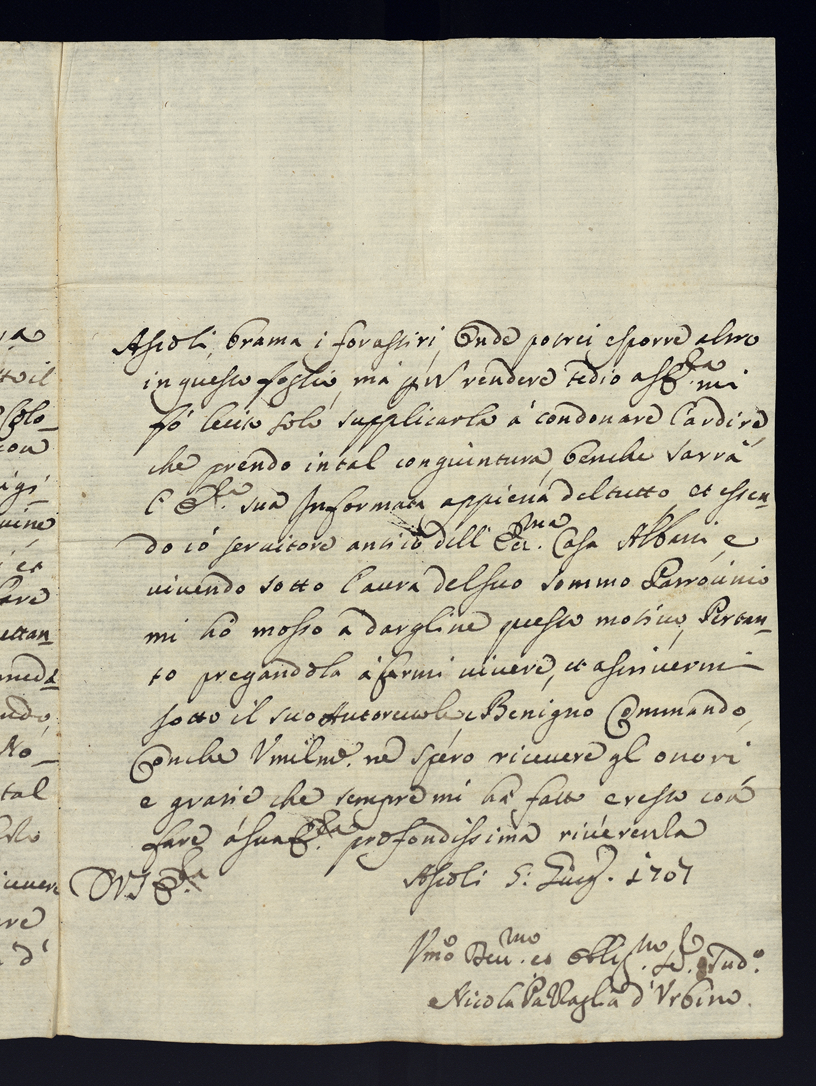 Ascoli, brama i forastiri, Onde potrei esporre altro
in questo foglio, ma per rendere tedio a S. E.za mi
fò lecito solo supplicarla à condonare l'ardire
che prendo in tal congiuntura, benche sarrà
l'E.za sua Informata appiena del tutto, et essen-
do iò servitore antico dell' Ecc.ma Casa Albani, e
vivendo sotto l'aura del suo sommo Patrocinio
mi hò mosso à dargline questo motivo, Pertan-
to pregandola à farmi vivere, et ascrivermi
sotto il suo Autorevole, e Benigno Commando,
Conche Vmilme. ne spero ricevere gl' onori
e grazie che sempre mi hà fatto e resto con
fare à sua E.za profondissima riverenza
D V S E.za
Ascoli 5: Giug. 1707
Vmo Dev.mo et Obblig.mo Se.
Nicola d'Vrbino.
va
to il
Colo-
con
igi
vine
et
are
ettan-
endo,
No-
tal
ivere
re
d'